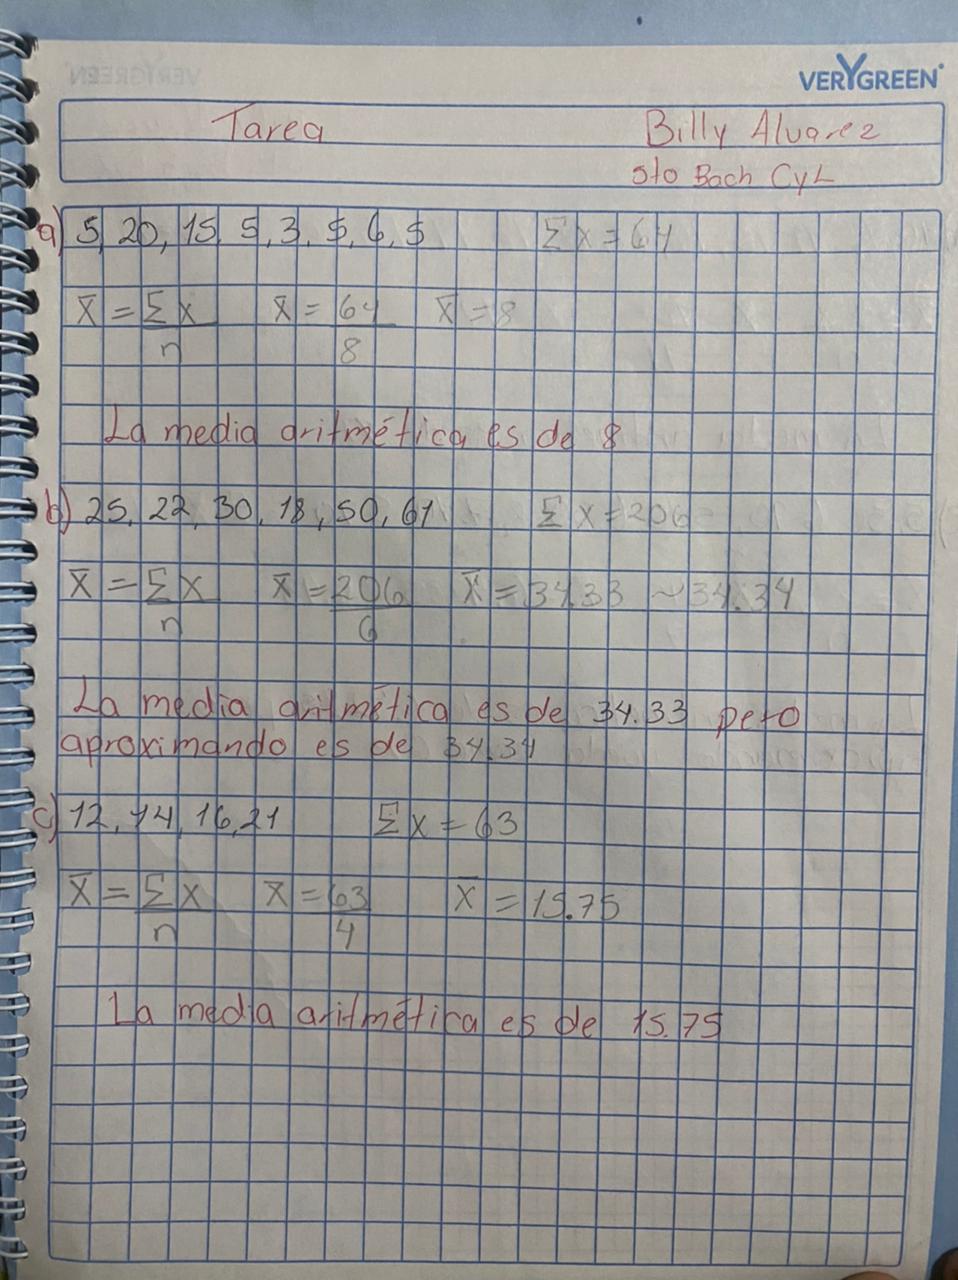 VERYGREEN
Tarea Billy Alvarez
5to Bach CyL
a) 5, 20, 15, 5, 3, 5, 6, 5 Σx = 64
x̄ = Σx/n x̄ = 64/8 x̄ = 8
La media aritmética es de 8
b) 25, 22, 30, 18, 50, 61 Σx = 206
x̄ = Σx/n x̄ = 206/6 x̄ = 34.33 ~ 34.34
La media aritmética es de 34.33 pero
aproximando es de 34.34
c) 12, 14, 16, 21 Σx = 63
x̄ = Σx/n x̄ = 63/4 x̄ = 15.75
La media aritmética es de 15.75